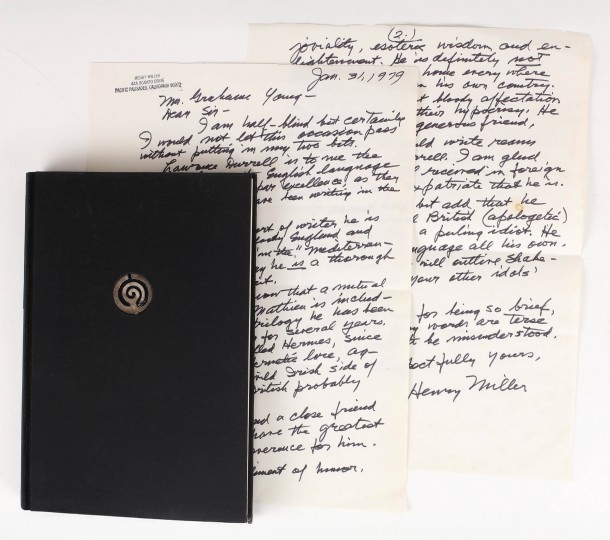 HENRY MILLER
444 OCAMPO DRIVE
PACIFIC PALISADES, CALIFORNIA 90272
Jan. 31, 1979
Mr. Grahame Young—
Dear Sir—
I am half-blind but certainly
I would not let this occasion pass
without putting in my two bits.
Lawrence Durrell is to me the
English language
par excellence, as they
been writing in the
of writer he is
England and
in the "Mediterran-
he is a thorough
that a mutual
Mathieu is includ-
trilogy he has been
for several years.
Hermes, since
lore, ag-
Irish side of
British probably
and a close friend
have the greatest
reverence for him.
liment of humor,
(2.)
joviality, esoteric wisdom and en-
lightenment. He is definitely not
home every where
his own country.
bloody affectation
their hypocrisy. He
generous friend,
write reams
Durrell. I am glad
received in foreign
expatriate that he is.
but add that he
British (apologetic)
a puling idiot. He
language all his own.
will outlive Shake-
your other idols!
for being so brief,
words are terse
be misunderstood.
Respectfully yours,
Henry Miller